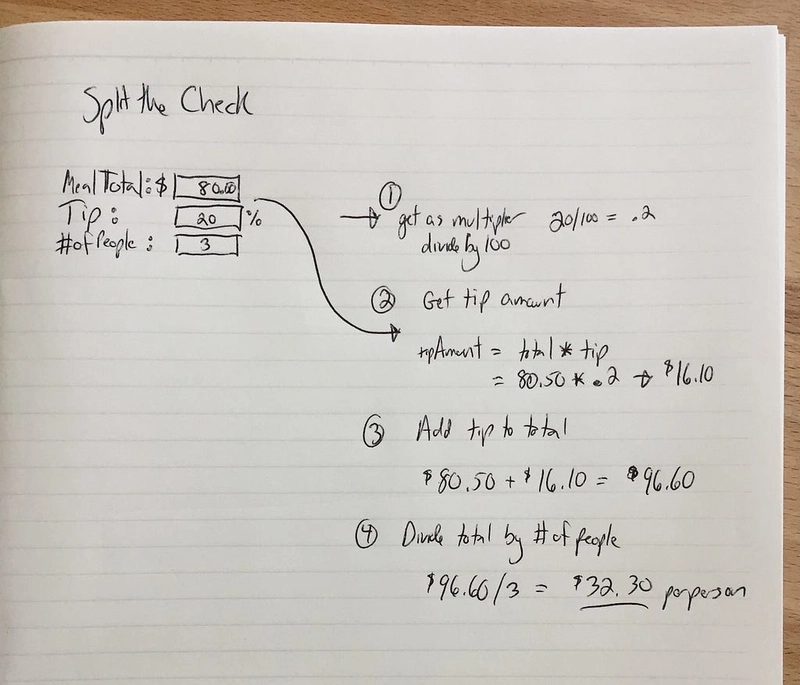 Split the Check
Meal Total: $ 80.00
Tip: 20 %
# of People: 3
①
→ get as multipler 20/100 = .2
divide by 100
② Get tip amount
tipAmount = total * tip
= 80.50 * .2 → $16.10
③ Add tip to total
$80.50 + $16.10 = $96.60
④ Divide total by # of people
$96.60/3 = $32.30 per person